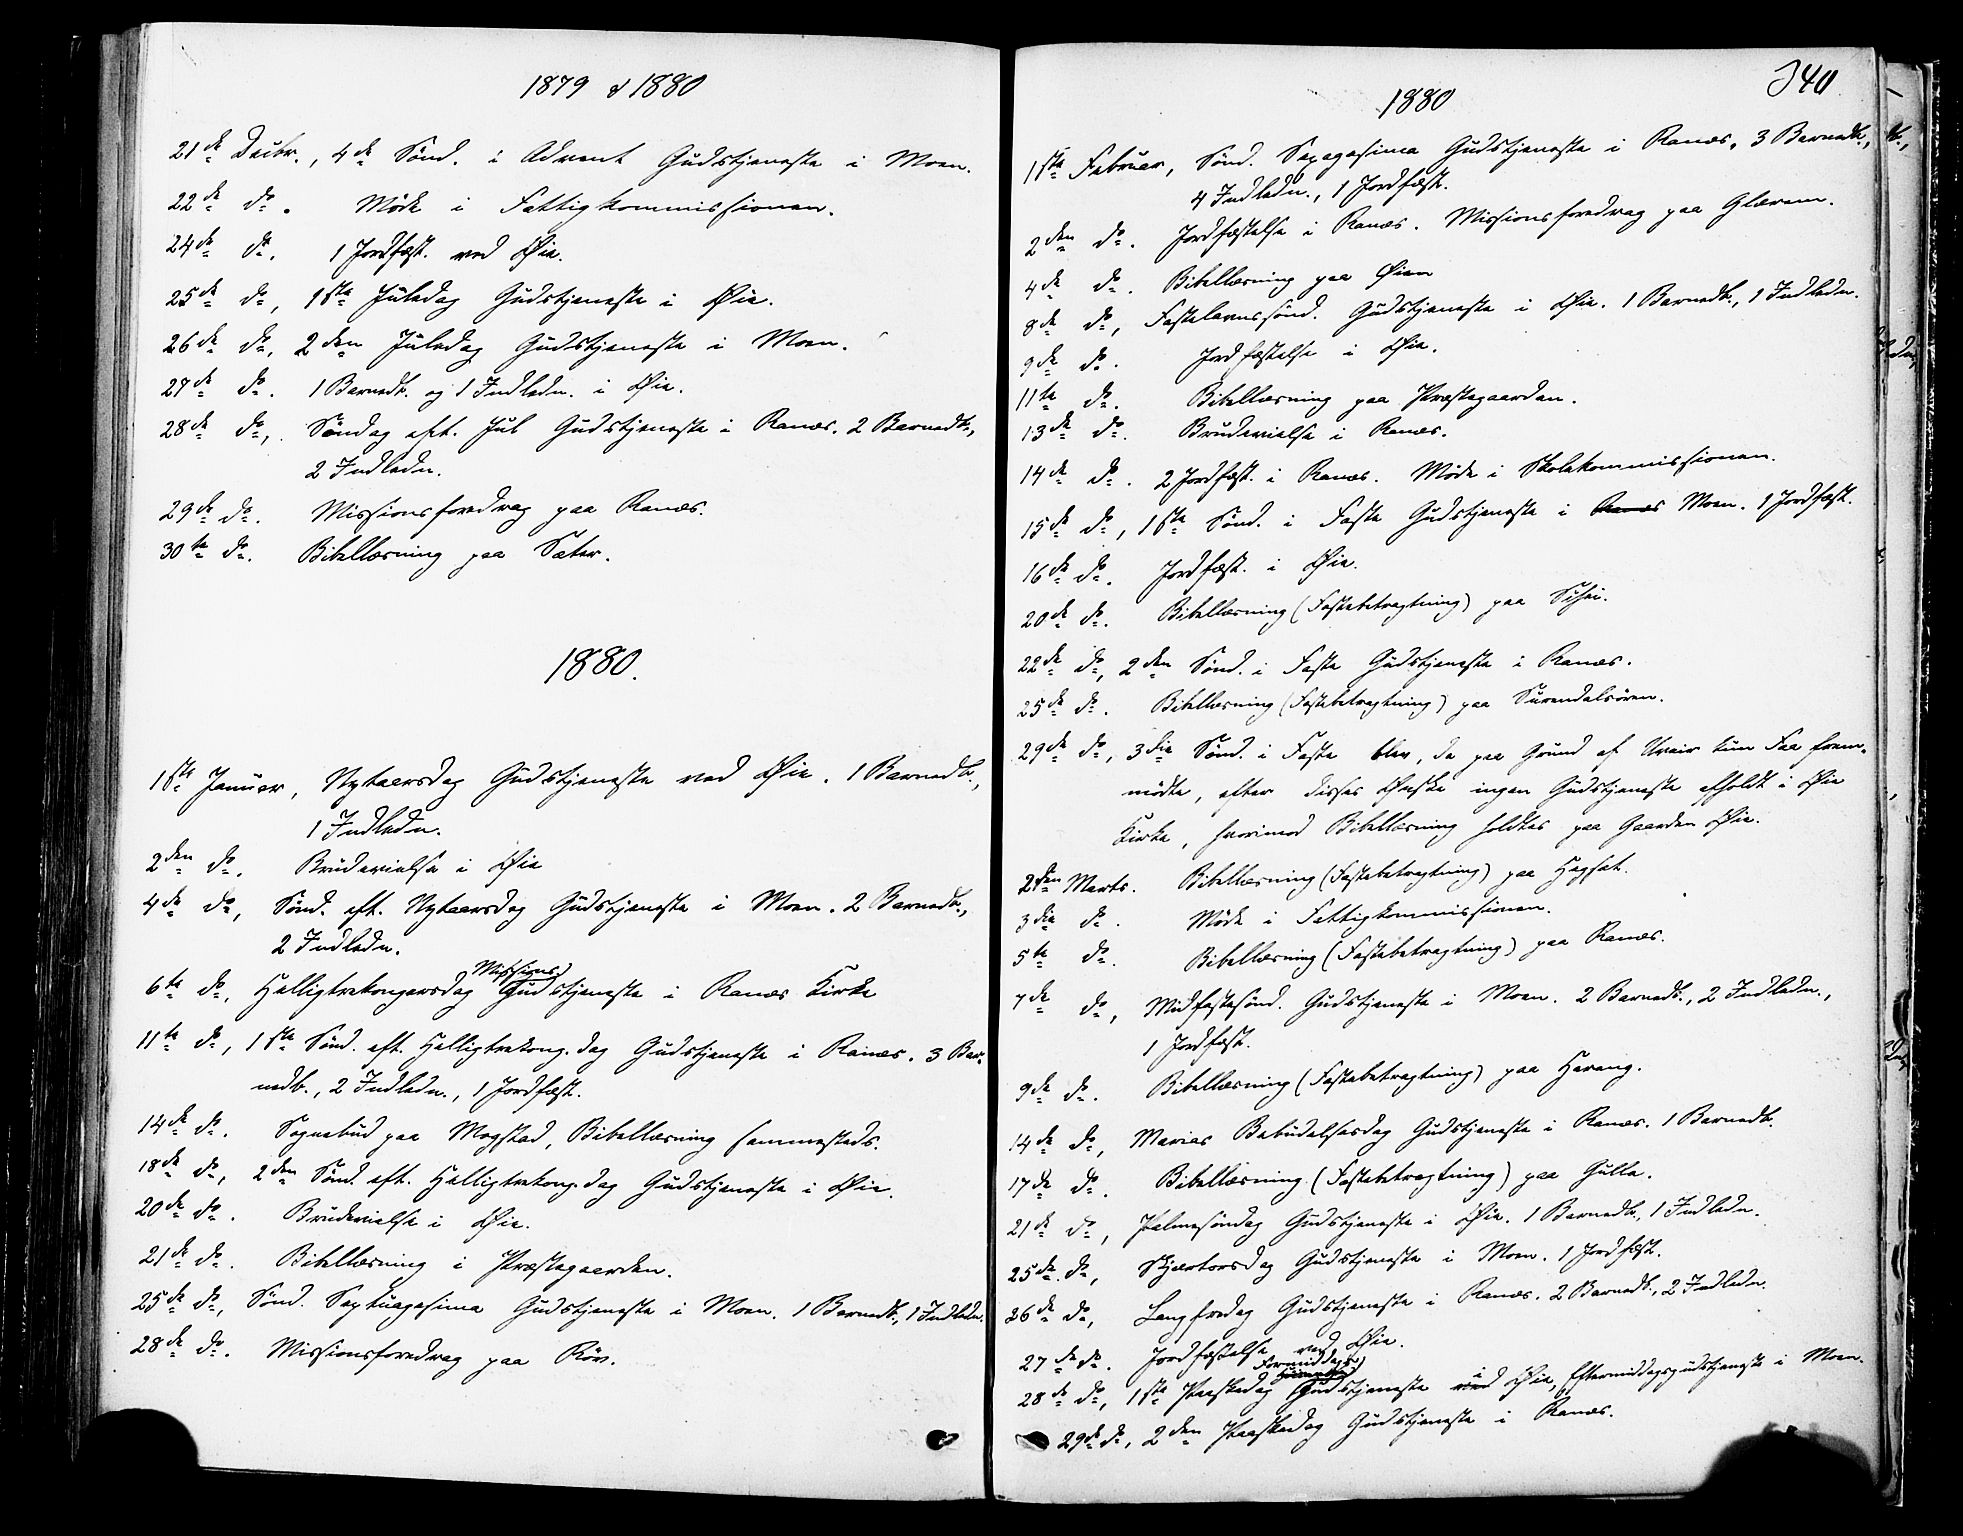 1879 & 1880
21de Decbr., 4de Sönd. i Advent Gudstjeneste i Moen.
22de do. Möde i Fattigkommissionen.
24de do. 1 Jordfæst. ved Øie.
25de do, 1ste Juledag Gudstjeneste i Øie.
26de do, 2den Juledag Gudstjeneste i Moen.
27de do. 1 Barnedb. og 1 Indledn. i Øie.
28de do, Söndag eft. Jul Gudstjeneste i Ranæs. 2 Barnedb.,
2 Indledn.
29de do. Missionsforedrag paa Ranæs.
30te do. Bibellæsning paa Sæter.
1880.
1ste Januar, Nytaarsdag Gudstjeneste ved Øie. 1 Barnedb.,
1 Indledn.
2den do. Brudevielse i Øie
4de do, Sönd. eft. Nytaarsdag Gudstjeneste i Moen. 2 Barnedb.,
2 Indledn.
Missions
6te do, Helligtrekongersdag Gudstjeneste i Ranæs Kirke
11te do, 1ste Sönd. eft. Helligtrekong.dag Gudstjeneste i Ranæs. 3 Bar-
nedb., 2 Indledn., 1 Jordfæst.
14de do. Sognebud paa Mogstad, Bibellæsning sammesteds.
18de do, 2den Sönd. eft. Helligtrekong.dag Gudstjeneste i Øie.
20de do. Brudevielse i Øie.
21de do. Bibellæsning i Præstegaarden.
25de do, Sönd. Septuagesima Gudstjeneste i Moen. 1 Barnedb., 1 Indledn.
28de do. Missionsforedrag paa Röv.
340
1880
1ste Februar, Sönd. Sexagesima Gudstjeneste i Ranæs, 3 Barnedb.,
4 Indledn., 1 Jordfæst.
2den do. Jordfæstelse i Ranæs. Missionsforedrag paa Glærem.
4de do. Bibellæsning paa Øien
8de do, Fastelavnssönd. Gudstjeneste i Øie. 1 Barnedb., 1 Indledn.
9de do. Jordfæstelse i Øie.
11te do. Bibellæsning paa Præstegaarden.
13de do. Brudevielse i Ranæs.
14de do. 2 Jordfæst. i Ranæs. Möde i Skolekommissionen.
15de do, 1ste Sönd. i Faste Gudstjeneste i Ranæs Moen. 1 Jordfæst.
16de do. Jordfæst. i Øie.
20de do. Bibellæsning (Fastebetragtning) paa
22de do, 2den Sönd. i Faste Gudstjeneste i Ranæs.
25de do. Bibellæsning (Fastebetragtning) paa Surendalsören.
29de do, 3die Sönd. i Faste blev, da paa Grund af Uveir kun Faa frem-
mödte, efter disses Ønske ingen Gudstjeneste afholdt i Øie
Kirke, hvorimod Bibellæsning holdtes paa Gaarden Øie.
2den Marts. Bibellæsning (Fastebetragtning) paa Hagset.
3die do. Möde i Fattigkommissionen.
5te do. Bibellæsning (Fastebetragtning) paa Ranæs.
7de do, Midfastesönd. Gudstjeneste i Moen. 2 Barnedb., 2 Indledn.,
1 Jordfæst.
9de do. Bibellæsning (Fastebetragtning) paa Harang.
14de do, Mariæ Bebudelsesdag Gudstjeneste i Ranæs. 1 Barnedb.
17de do. Bibellæsning (Fastebetragtning) paa Gulla.
21de do, Palmesöndag Gudstjeneste i Øie. 1 Barnedb., 1 Indledn.
25de do, Skjærtorsdag Gudstjeneste i Moen. 1 Jordfæst.
26de do, Langfredag Gudstjeneste i Ranæs. 2 Barnedb., 2 Indledn.
27de do. Jordfæstelse ved Øie.
Formiddags
28de do, 1ste Paaskedag Gudstjeneste ved i Øie, Eftermiddagsgudstjeneste i Moen.
29de do, 2den Paaskedag Gudstjeneste i Ranæs.